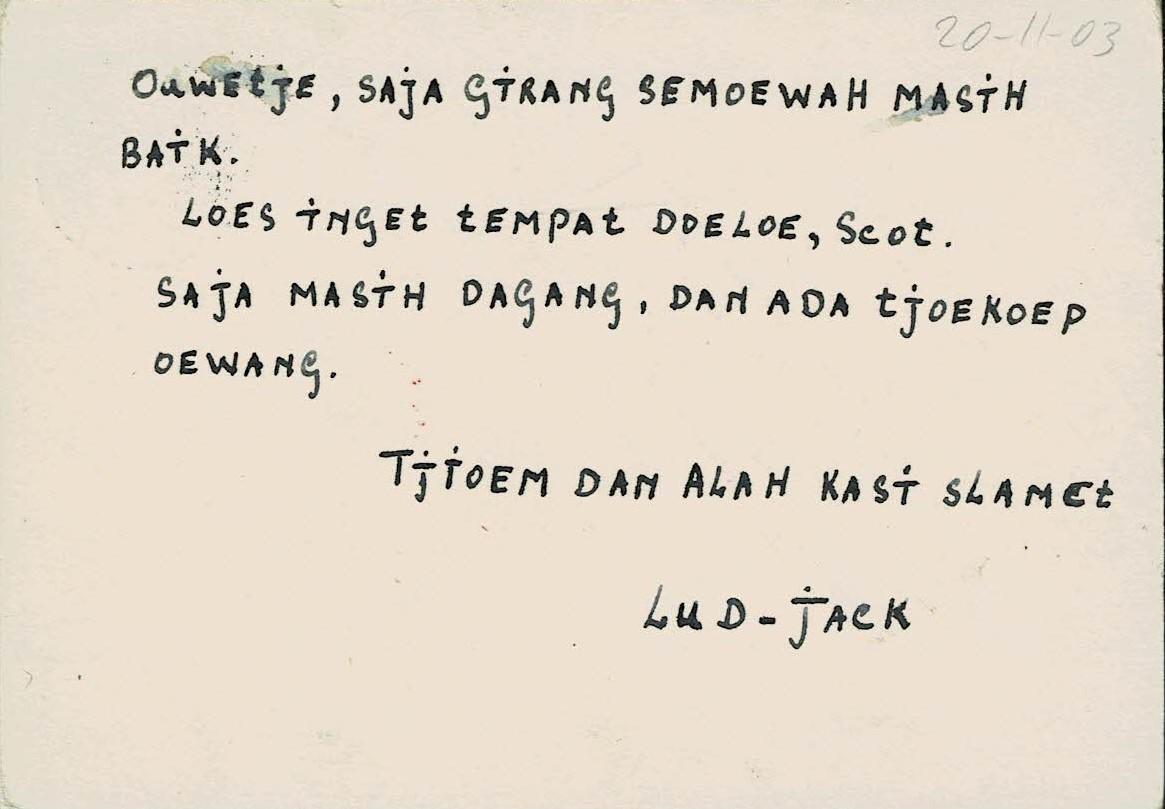 20-11-03
Ouwetje, SAjA GiRANG SEMOEWAH MASiH
BAiK.
LOES iNGEt tEMPAt DOELOE, Scot.
SAjA MASiH DAGANG, DAN ADA tjOEKOEP
OEWANG.
TjiOEM DAN ALAH KASi SLAMEt
LUD-jACK